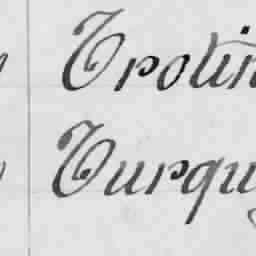 Trolin
Turquy